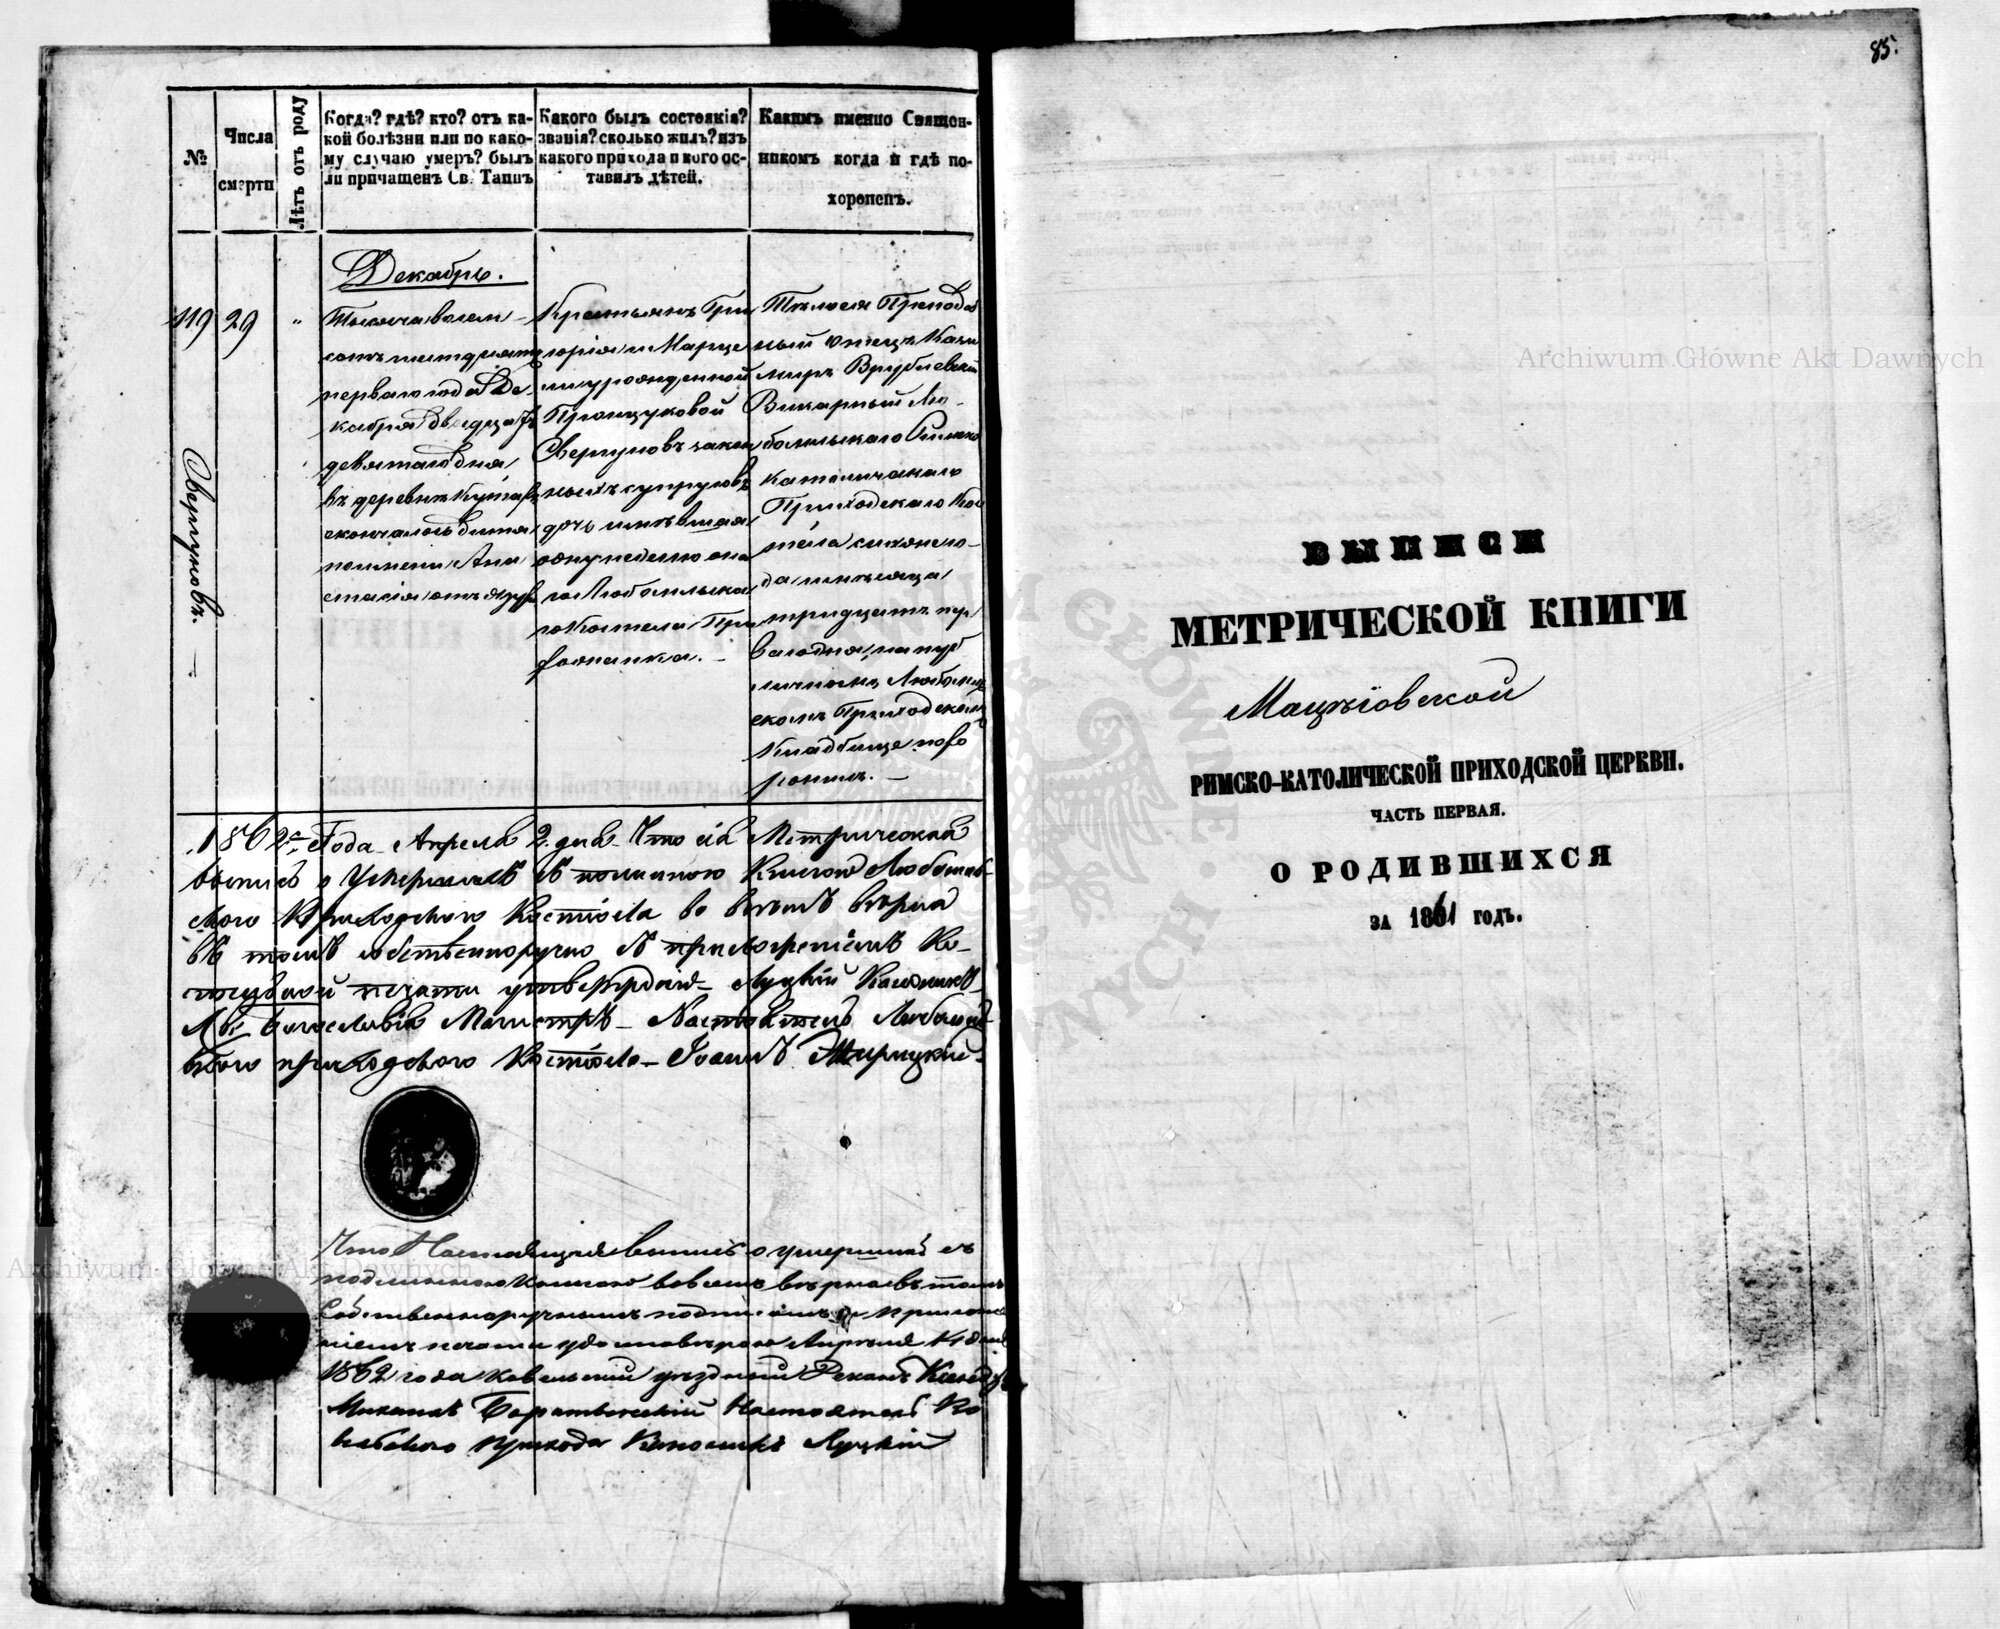 №
Числа
смерти
Лѣтъ отъ роду
Когда? гдѣ? кто? отъ ка-
кой болѣзни или по како-
му случаю умеръ? былъ
ли причащенъ Св. Таинъ
Какого былъ состоянія?
званія? сколько жилъ? изъ
какого прихода и кого ос-
тавилъ дѣтей.
Какимъ именно Священ-
никомъ когда и гдѣ по-
хороненъ.
Декабрь.
119
29
"
Свергуновъ.
Тысяча восем-
сотъ шестдесятъ
перваго года Де-
кабря двадцать
девятаго дня
въ деревнѣ
скончалось дитя
по имени Ана
стасія отъ
Крестьянъ Гри
горія и Марце
ли урожденной
Свергуновъ закон
ныхъ супруговъ
дочь имѣвшая
одну недѣлю она
го Любомльска
го Костела При
хожанка. —
Тѣло ея Преподоб
ный Отецъ Кази
миръ Врублевскій
Викарный Лю-
бомльскаго Римско
Католическаго
Приходскаго Кос
тела сихже го-
да и мѣсяца
тридцать пер
ваго дня на пуб
личномъ Любомль
скомъ Приходскомъ
Кладбище похо
ронилъ. —
1862го Года Апреля 2 дня Что сія Метрическая
выпись о Умершихъ съ Книгою Любомль-
скаго Приходского Костёла во всемъ вѣрна
въ томъ собственноручно съ приложеніемъ Ко-
стельной печати утверждаю — Луцкій Каноникъ
Богословія Магистръ — Настоятель Любомль-
скаго приходского Костёла — Іоаннъ
Что Настоящая выпись о умершихъ съ
подлинною книгою во всемъ вѣрна въ томъ
собственноручнымъ подписомъ и приложе
ніемъ печати удостовѣряю Апрѣля дня
1862 года Ковельскій уѣздный Деканъ
Михаилъ Настоятель Ко
вельского прихода Каноникъ Луцкій
85.
ВЫПИСИ
МЕТРИЧЕСКОЙ КНИГИ
Мацѣіовской
РИМСКО-КАТОЛИЧЕСКОЙ ПРИХОДСКОЙ ЦЕРКВИ.
ЧАСТЬ ПЕРВАЯ.
О РОДИВШИХСЯ
ЗА 1861 ГОДЪ.
Archiwum Główne Akt Dawnych
Archiwum Główne Akt Dawnych